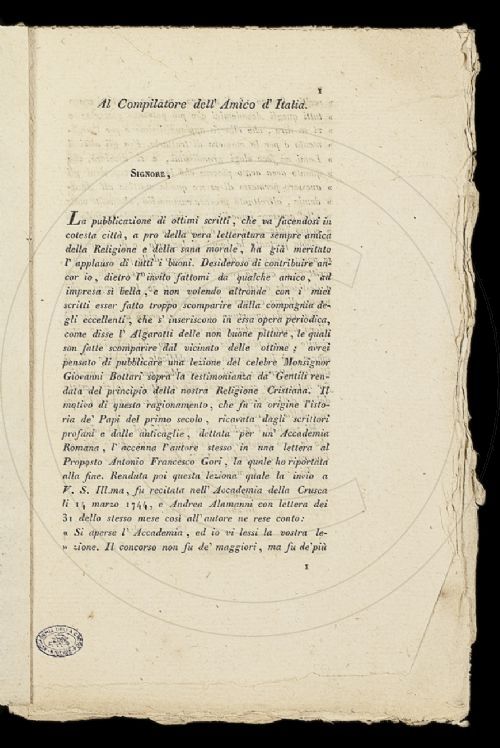 1
Al Compilatore dell' Amico d' Italia.
SIGNORE,
La pubblicazione di ottimi scritti, che va facendosi in
cotesta città, a pro della vera letteratura sempre amica
della Religione e della sana morale, ha già meritato
l' applauso di tutti i buoni. Desideroso di contribuire an-
cor io, dietro l' invito fattomi da qualche amico, ad
impresa sì bella, e non volendo altronde con i miei
scritti esser fatto troppo scomparire dalla compagnia de-
gli eccellenti, che s' inseriscono in essa opera periodica,
come disse l' Algarotti delle non buone pitture, le quali
son fatte scomparire dal vicinato delle ottime; avrei
pensato di pubblicare una lezione del celebre Monsignor
Giovanni Bottari sopra la testimonianza da' Gentili ren-
duta del principio della nostra Religione Cristiana. Il
motivo di questo ragionamento, che fu in origine l'isto-
ria de' Papi del primo secolo, ricavata dagli scrittori
profani e dalle anticaglie, dettata per un' Accademia
Romana, l' accenna l' autore stesso in una lettera al
Proposto Antonio Francesco Gori, la quale ho riportata
alla fine. Renduta poi questa lezione quale la invio a
V. S. Ill.ma, fu recitata nell' Accademia della Crusca
li 14 marzo 1744, e Andrea Alamanni con lettera dei
31 dello stesso mese così all' autore ne rese conto:
« Si aperse l' Accademia, ed io vi lessi la vostra le-
» zione. Il concorso non fu de' maggiori, ma fu de' più
1